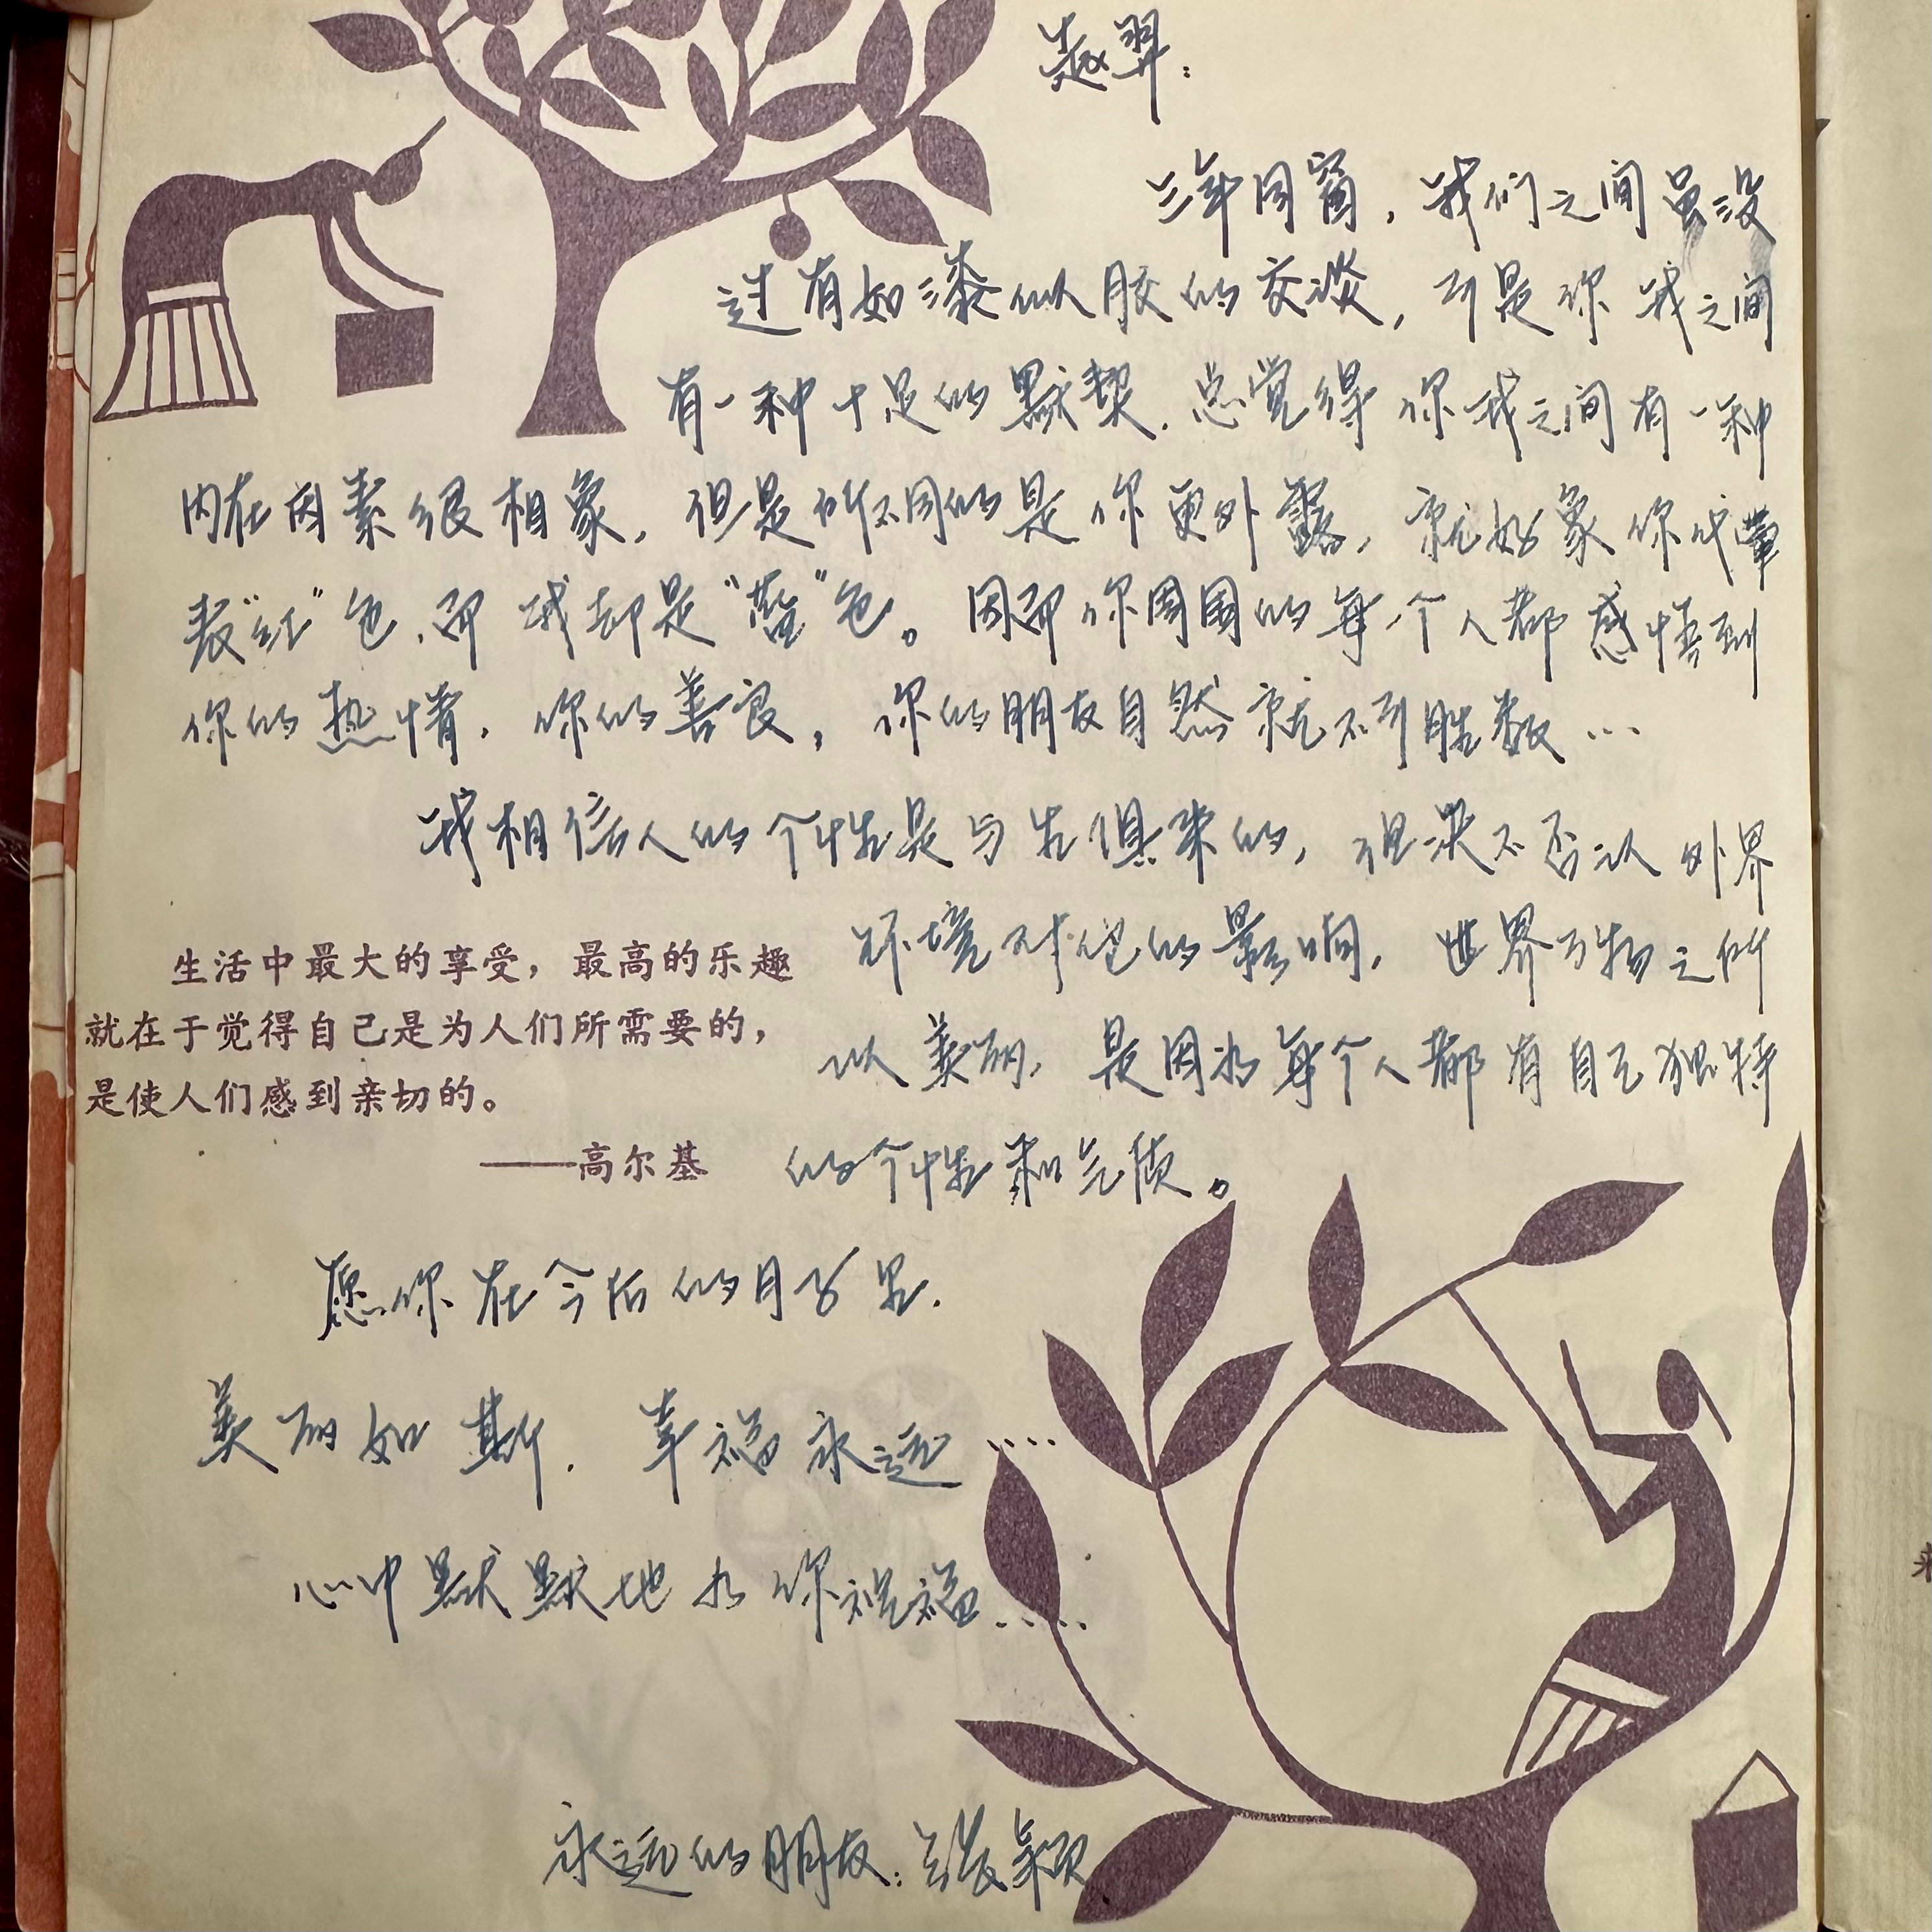 赵羿:
三年同窗,我们之间虽没
过有如漆似胶的交谈,可是你我之间
有一种十足的默契.总觉得你我之间有一种
内在因素很相象,但是所不同的是你更外露,就好象你代
表“红”色,而我却是“蓝”色。因而你周围的每个人都感悟到
你的热情,你的善良,你的朋友自然就不可胜数…
我相信人的个性是与生俱来的,但决不否认外界
环境对它的影响,世界万物之所
以美丽,是因为每个人都有自己独特
的个性和气质。
生活中最大的享受,最高的乐趣
就在于觉得自己是为人们所需要的,
是使人们感到亲切的。
——高尔基
愿你在今后的日子里.
美丽如斯.幸福永远....
心中默默地为你祝福.....
永远的朋友:张颖